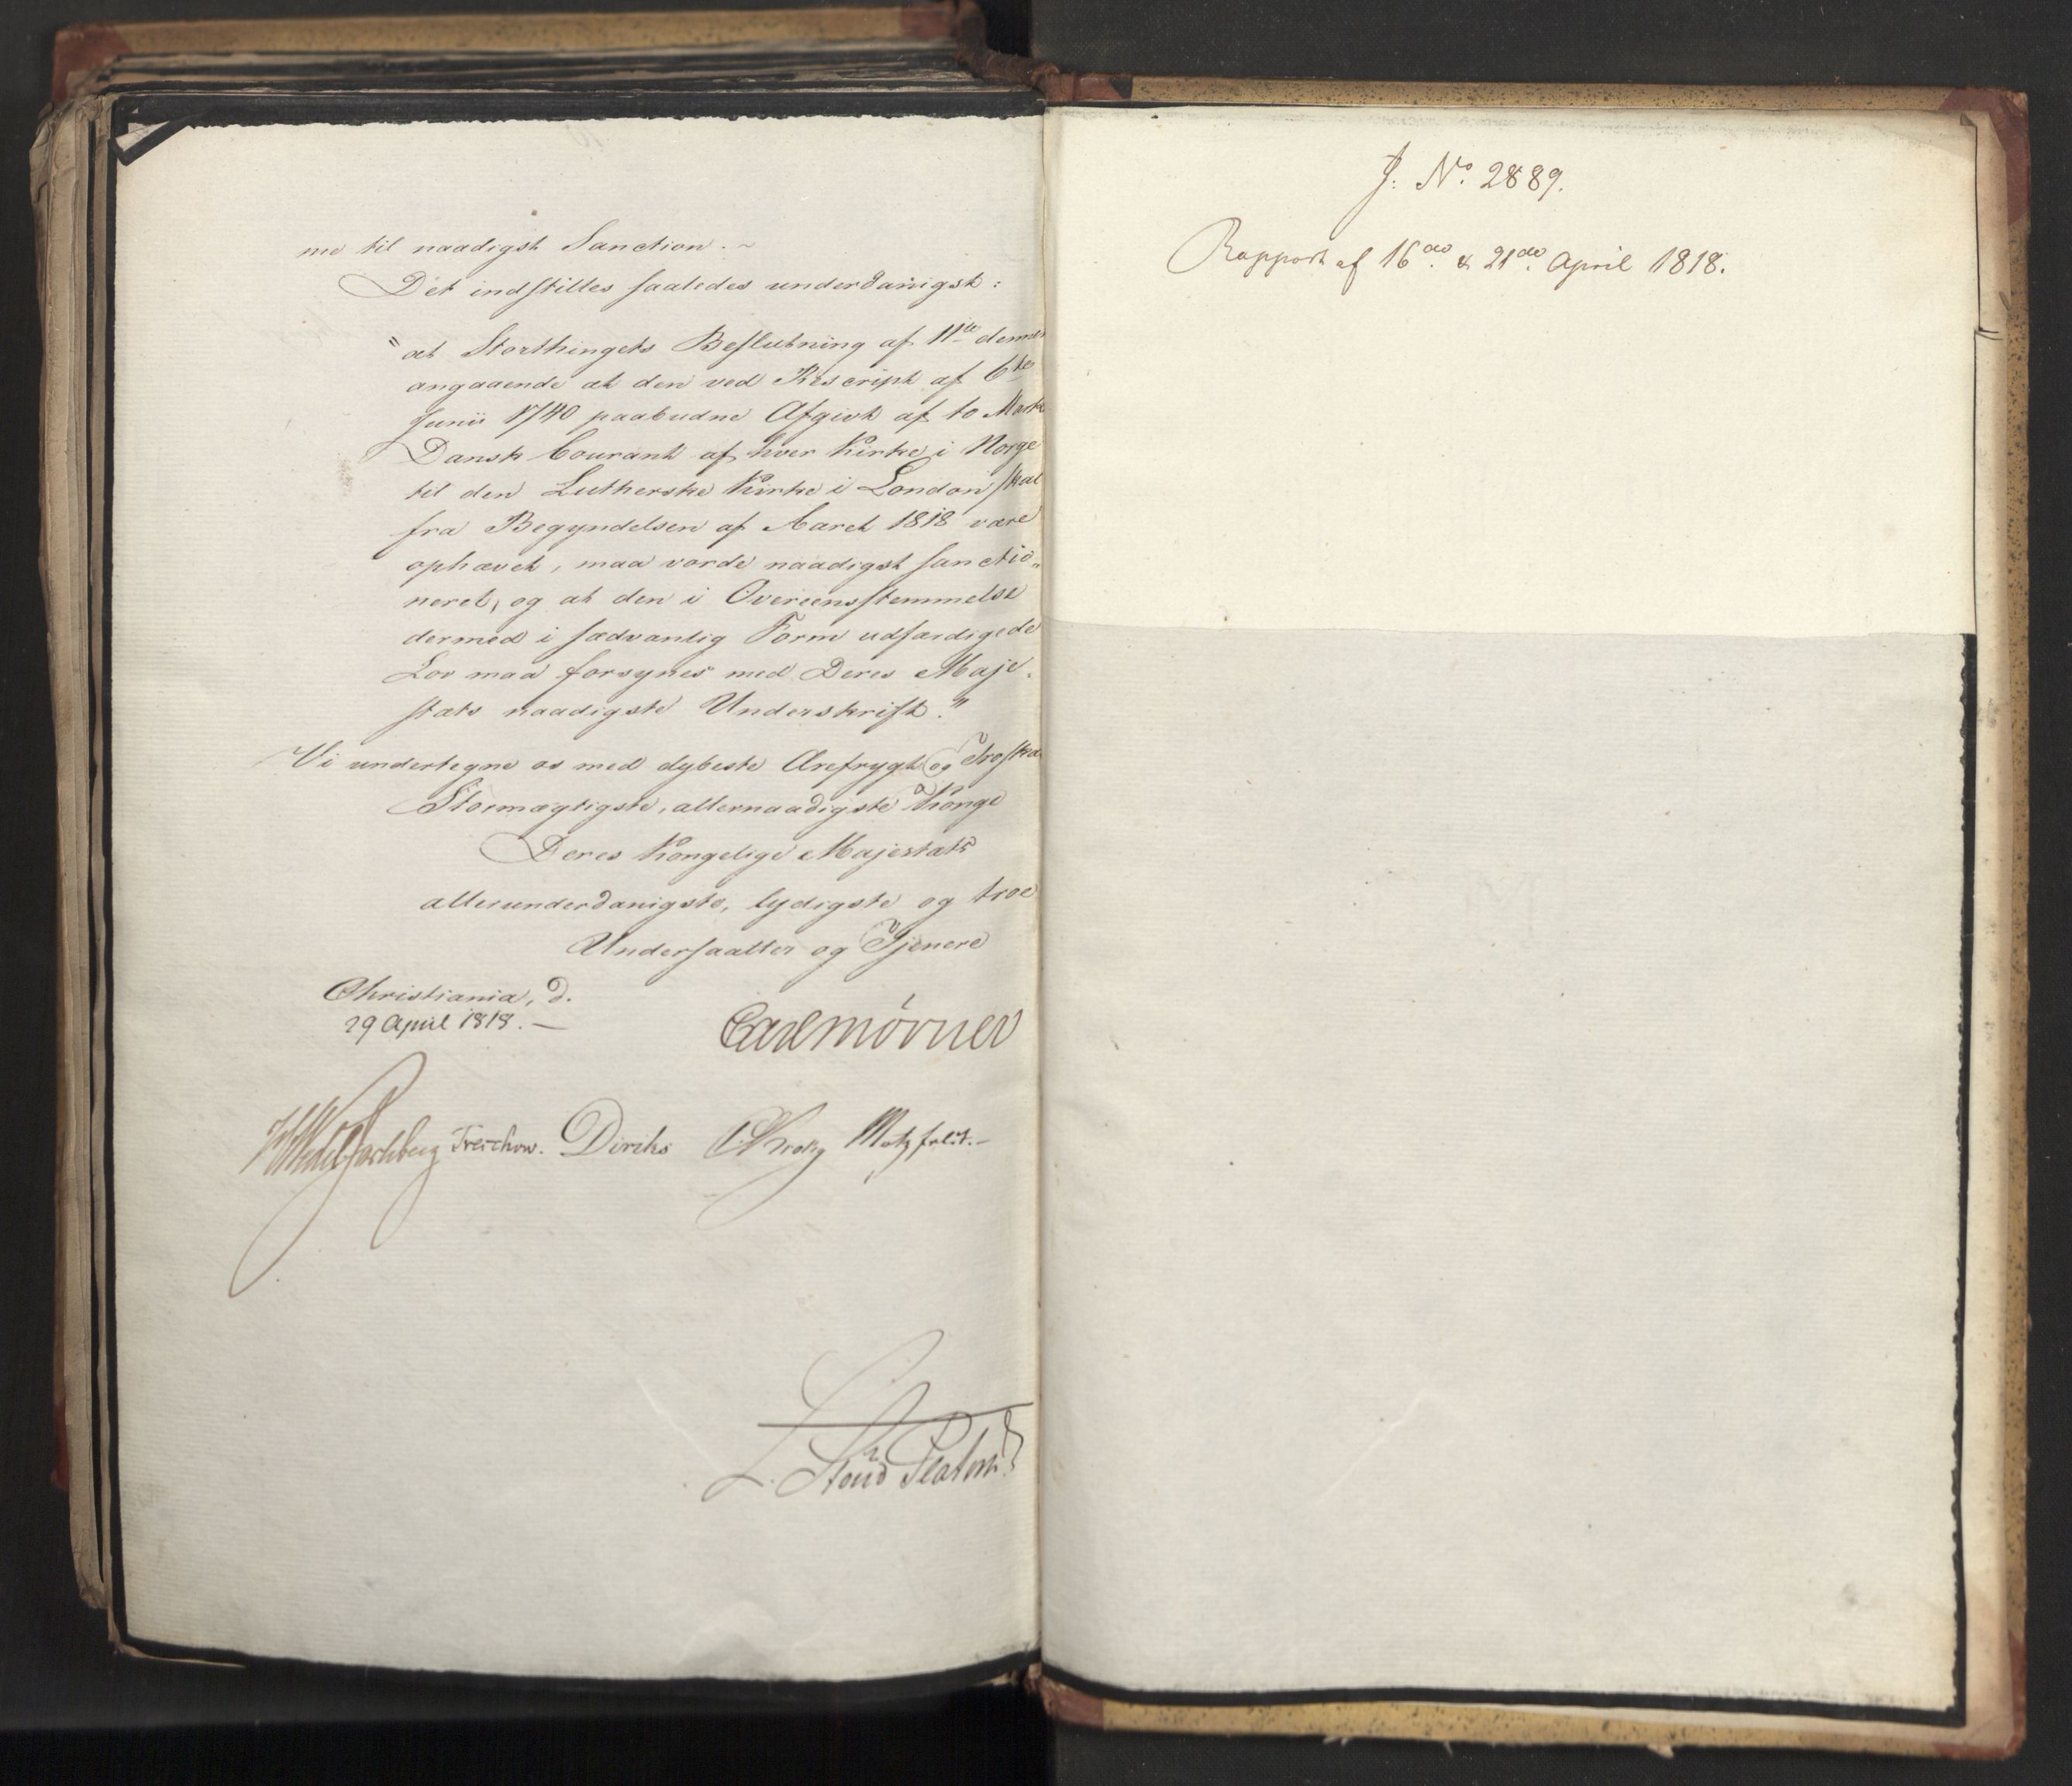 me til naadigst Sanction. ~
Det indstilles saaledes underdanigst:
"at Storthingets Beslutning af 11te dennes
angaaende at den ved Rescript af 6te
Junii 1740 paabudne Afgivt af to Mark
Dansk Courant af hver Kirke i Norge
til den Lutherske Kirke i London skal
fra Begyndelsen af Aaret 1818 være
ophævet, maa vorde naadigst sanctio„
neret, og at den i Overeensstemmelse
dermed i sædvanlig Form udfærdigede
Lov maa forsynes med Deres Maje„
stæts naadigste Underskrift."
Vi undertegne os med dybeste Ærefrygt og Troska
Stormægtigste, allernaadigste Konge
Deres Kongelige Majestæts
allerunderdanigste, lydigste og troe
Undersaatter og Tjenere
Christiania, d.
29 April 1818. —
Carl Mörner
Wedel Jarlsberg Treschow. Diriks CKrohg Motzfeldt. —
L.
J: No. 2889.
Rapport af 16de & 21de April 1818.